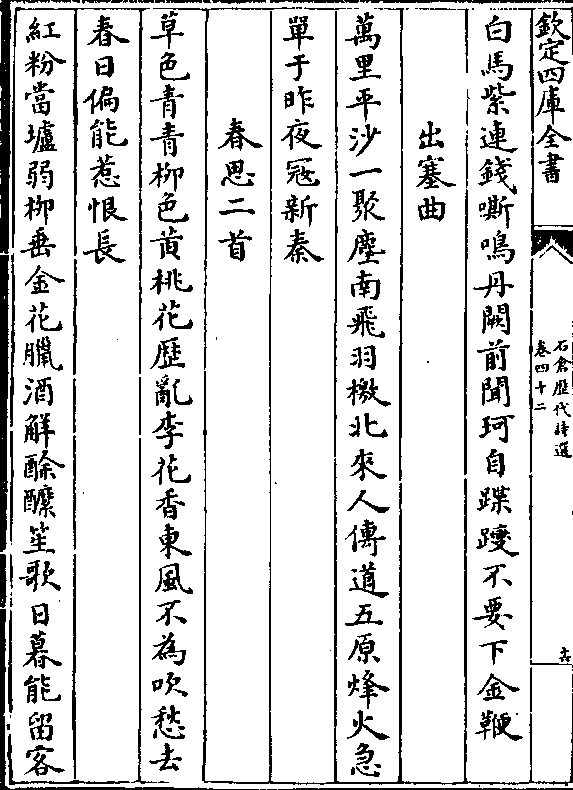 欽定四庫全書
石倉歷代詩選
卷四十二
六
白馬紫連錢嘶鳴丹闕前聞珂自蹀躞不要下金鞭
出塞曲
萬里平沙一聚塵南飛羽檄北來人傳道五原烽火急
單于昨夜冦新秦
春思二首
草色青青柳色黃桃花歷亂李花香東風不為吹愁去
春日偏能惹恨長
紅粉當壚弱柳垂金花臘酒解酴醿笙歌日暮能留客